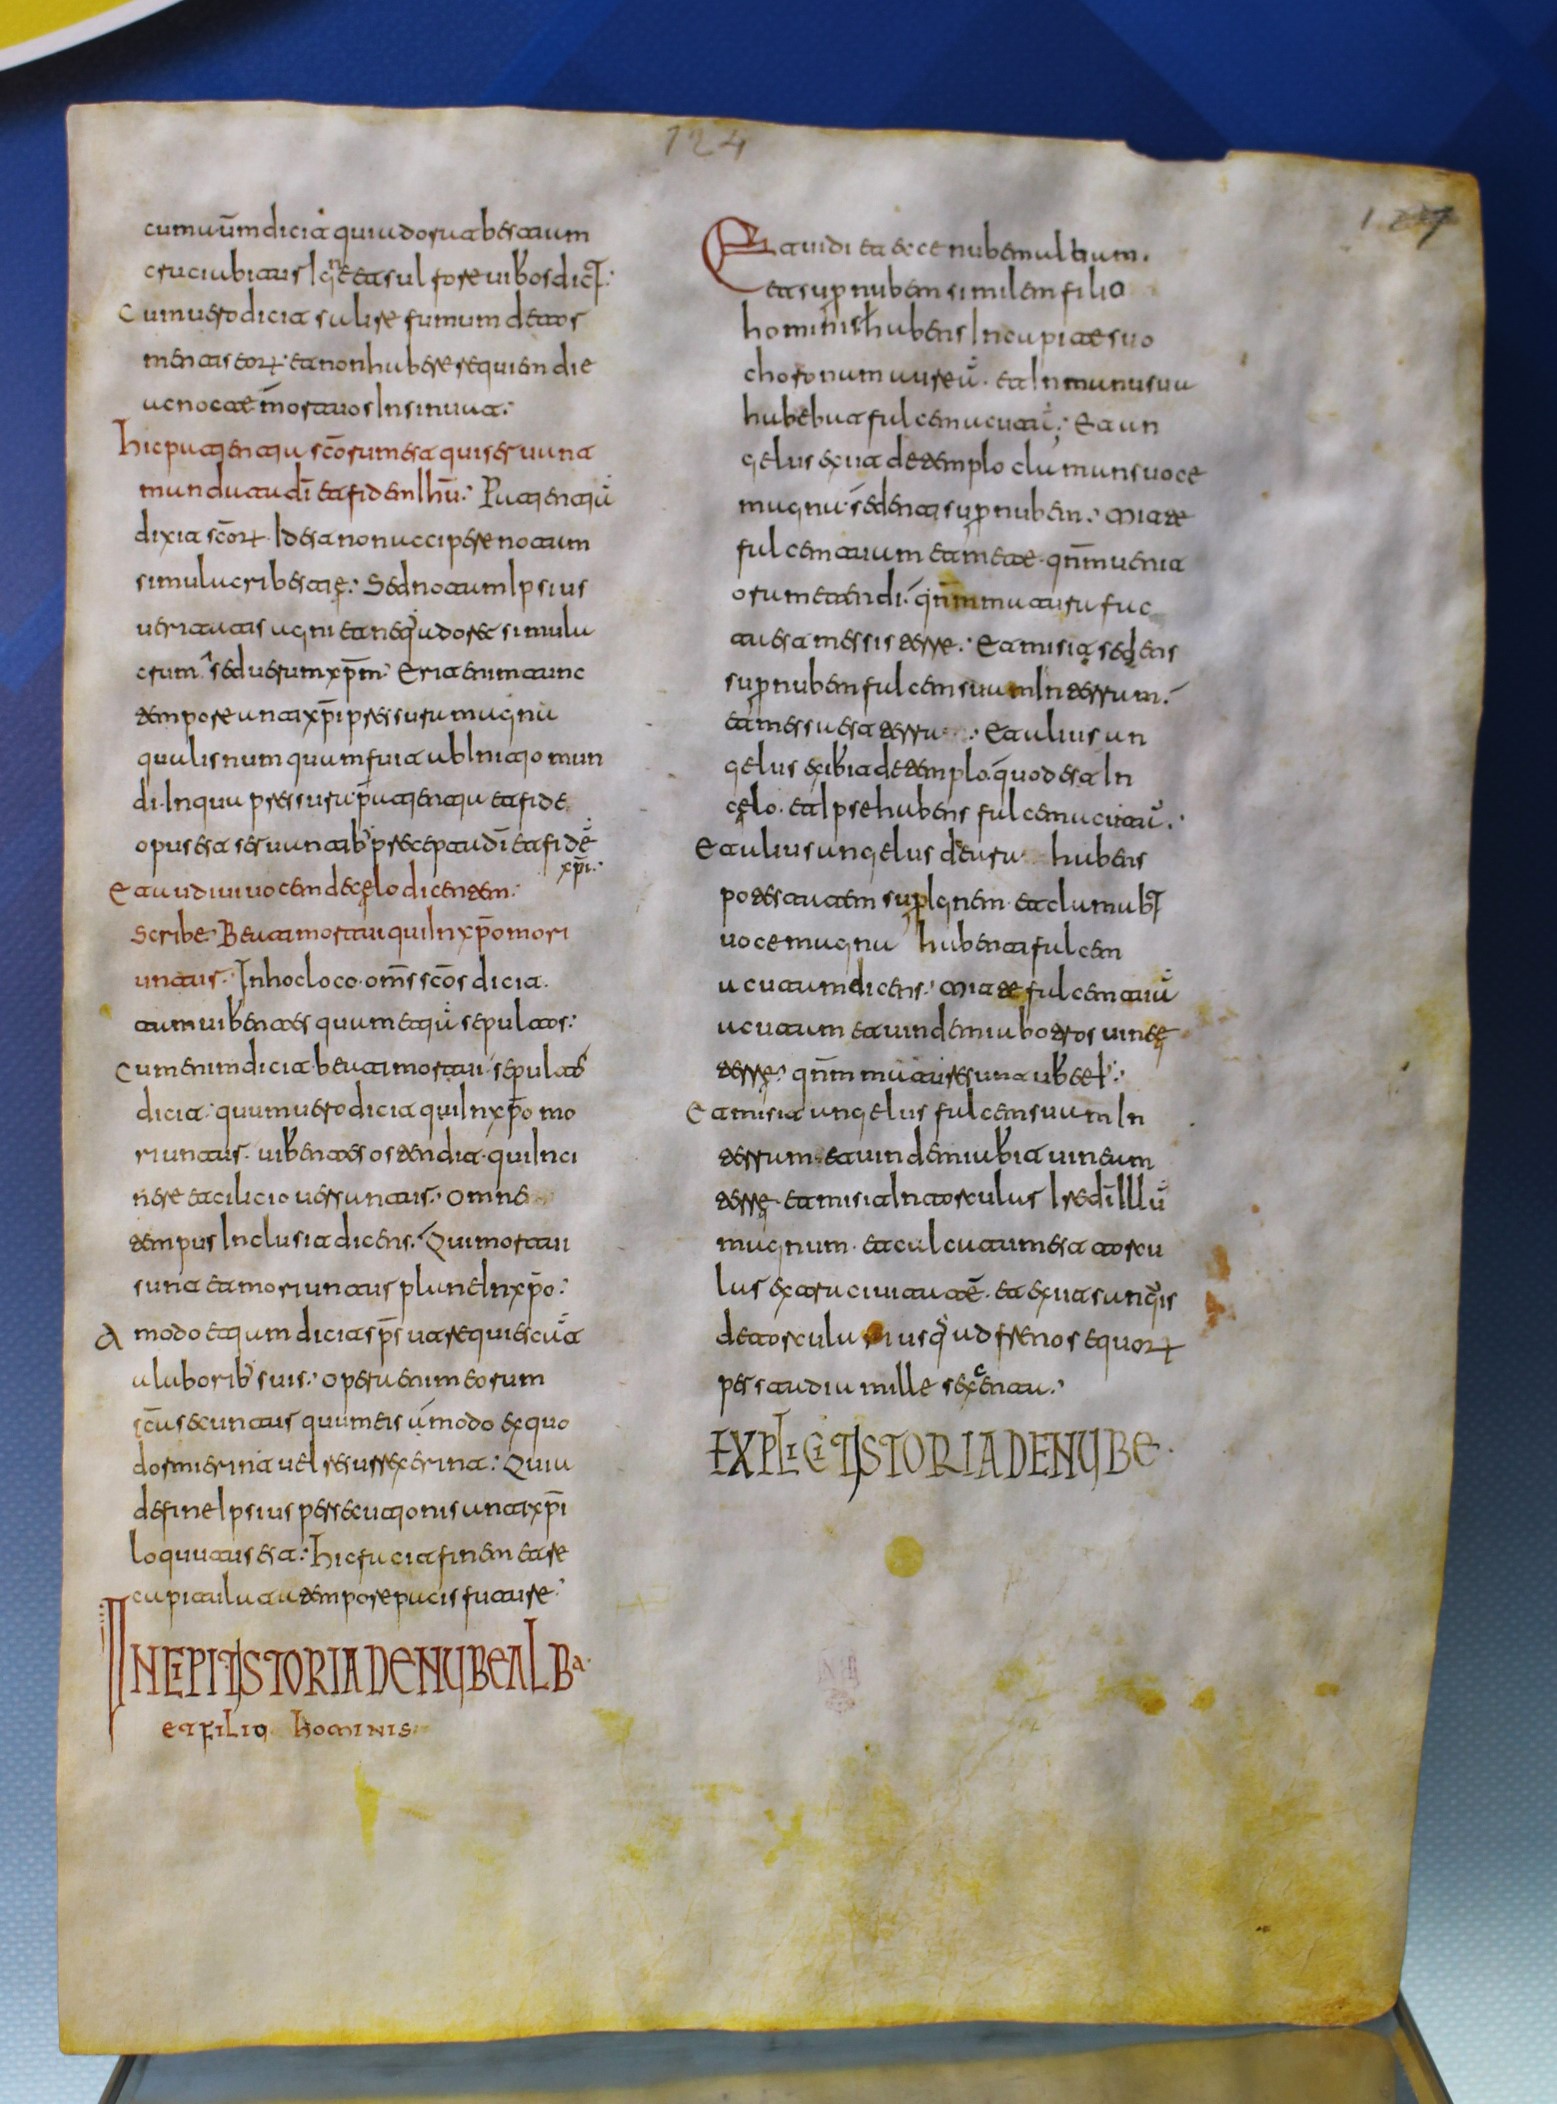 124
127
cum uūm dicit qui adorat bestium
cruciabitur igne et a sulfore uibos dict̄.
Cum uero dicit salire fumum de tor
mentis eorꝝ et non habere requiem die
ac nocte mortuos insinuat.
hic patientia scōrum est qui serbant
mandata dī et fidem Ihū. Patientia
dixit scōrꝝ. Id est a non accipere notam
simulacri bestię. Sed notam Ipsius
ueritatis agni et neq adorare simula
crum sed uerum xp̄m. Erit enim tunc
tempore antixp̄i pressura magna
qualis numquam fuit ab Initio mun
di. In qua pressura patientia et fide
opus est serbantib precepta dī et fidē
xp̄i.
Et audiui uocem de cęlo dicentem.
Scribe. Beati mortui qui In xp̄o mori
untur. In hoc loco om̄s scōs dicit.
tum uibentes quam etiā sepultos.
Cum enim dicit beati mortui sepultos
dicit. quum uero dicit qui In xp̄o mo
riuntur. uibentes ostendit. qui In ci
nere et cilicio uersantur. Omne
tempus Inclusit dicens. Qui mortui
sunt et moriuntur plane In xp̄o.
A modo etiam dicit sp̄s ut requiescāt
a laborib suis. Opera enim eorum
secuntur quum eis amodo ex quo
dormierint uel resurrexerint. Quia
de fine Ipsius persecutionis antixp̄i
loquutus est. Hic facit finem et re
capitulat a tempore pacis future.
INCIPIT ISTORIA DE NUBE ALBA.
ET FILIO HOMINIS
Et uidi et ecce nubem albam.
et super nubem similem filio
hominis habens In capite suo
choronam aureā. et In manu sua
habebat falcem acutā. Et an
gelus exiit de templo clamans uoce
magna sedenti super nubem. Mitte
falcem tuam et mete. qnm uenit
ora metendi. qnm matura fac
ta est messis terre. Et misit sedens
super nubem falcem suam In terram.
et messa est terra. Et alius an
gelus exibit de templo. quod est In
cęlo. et Ipse habens falcem acutā.
Et alius angelus de ara habens
potestatem super Ignem. et clamabt̄
uoce magna habenti falcem
acutam dicens. Mitte falcem tuā
acutam et uindemia botros uineę
terrę. qnm mature sunt ube eius.
Et misit angelus falcem suam In
terram. et uindemiabit uineam
terrę. et misit In torculus Ire dī Illū
magnum. et calcatum est torcu
lus extra ciuitatē. et exiit sanguis
de torculum usq ad frenos equorꝝ
per stadia mille sexcenta.
EXPLICIT ISTORIA DE NUBE.